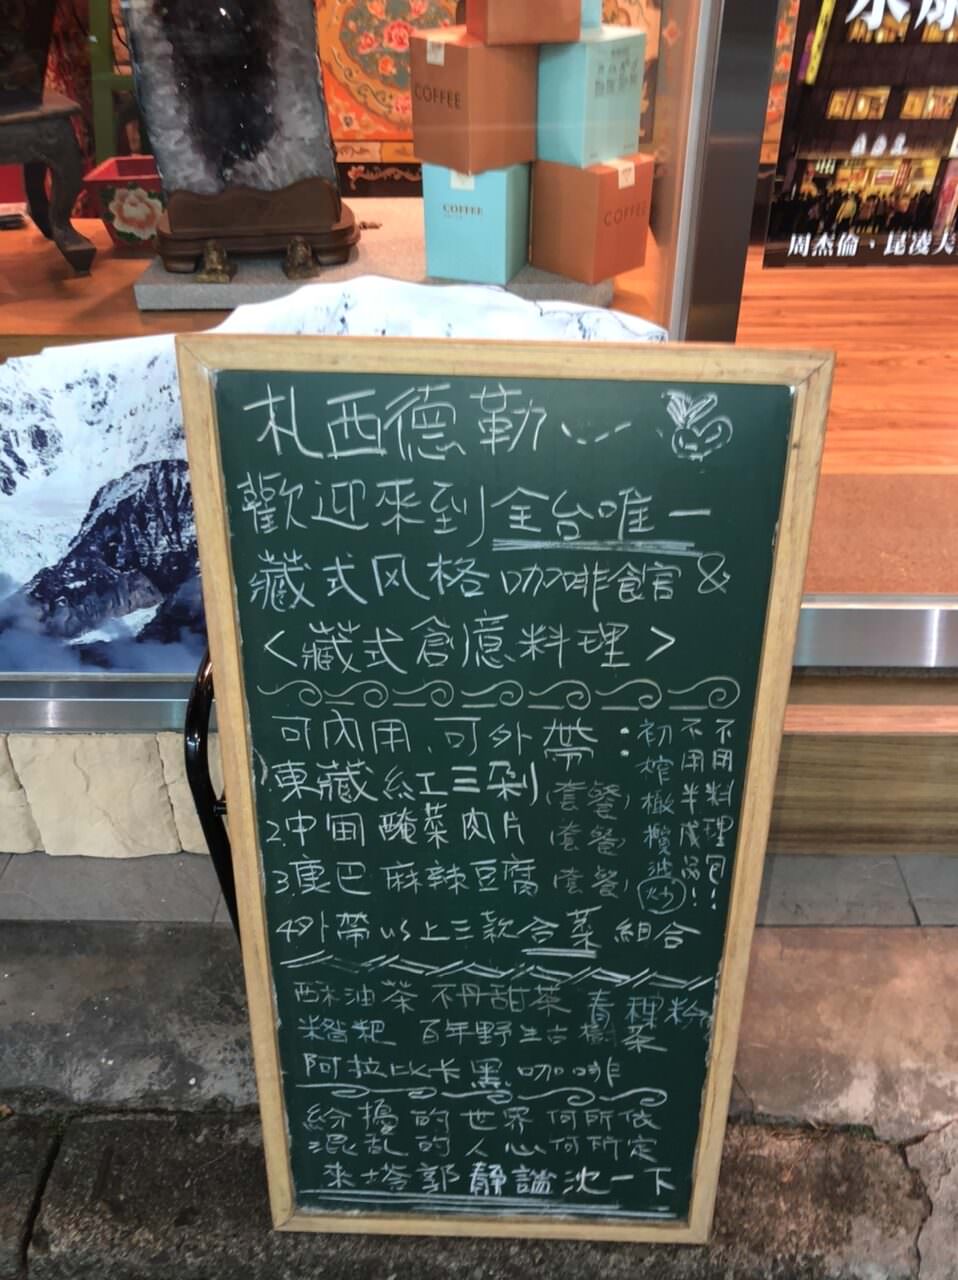 COFFEE
COFFEE
COFFEE
周杰倫、昆凌夫
札西德勒
歡迎來到全台唯一
藏式风格咖啡館 &
<藏式創意料理>
可內用、可外帶:
1.東藏紅三剁(套餐)
2.中甸醃菜肉片(套餐)
3瘦巴麻辣豆腐(套餐)
4外帶以上三款合菜組合
不用料理包!
不用半成品!
初榨橄欖油炒
酥油茶 不丹甜茶 青稞粉
糌粑 百年野生古樹茶
阿拉比卡黑咖啡
紛擾的世界何所依
混亂的人心何所定
來塔郭靜謐沈一下